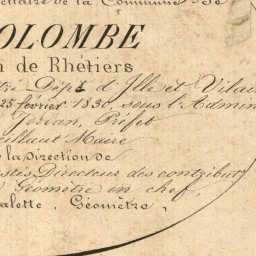 de la Commune de
OLOMBE
n de Rhétiers
Dépt d'Ille et Vilain
25 février 1830, sous l'Admin
Jovian, Préfet
tillaut Maire
la direction de
Directeur des contribut
Géomètre en chef,
alette, Géomètre,